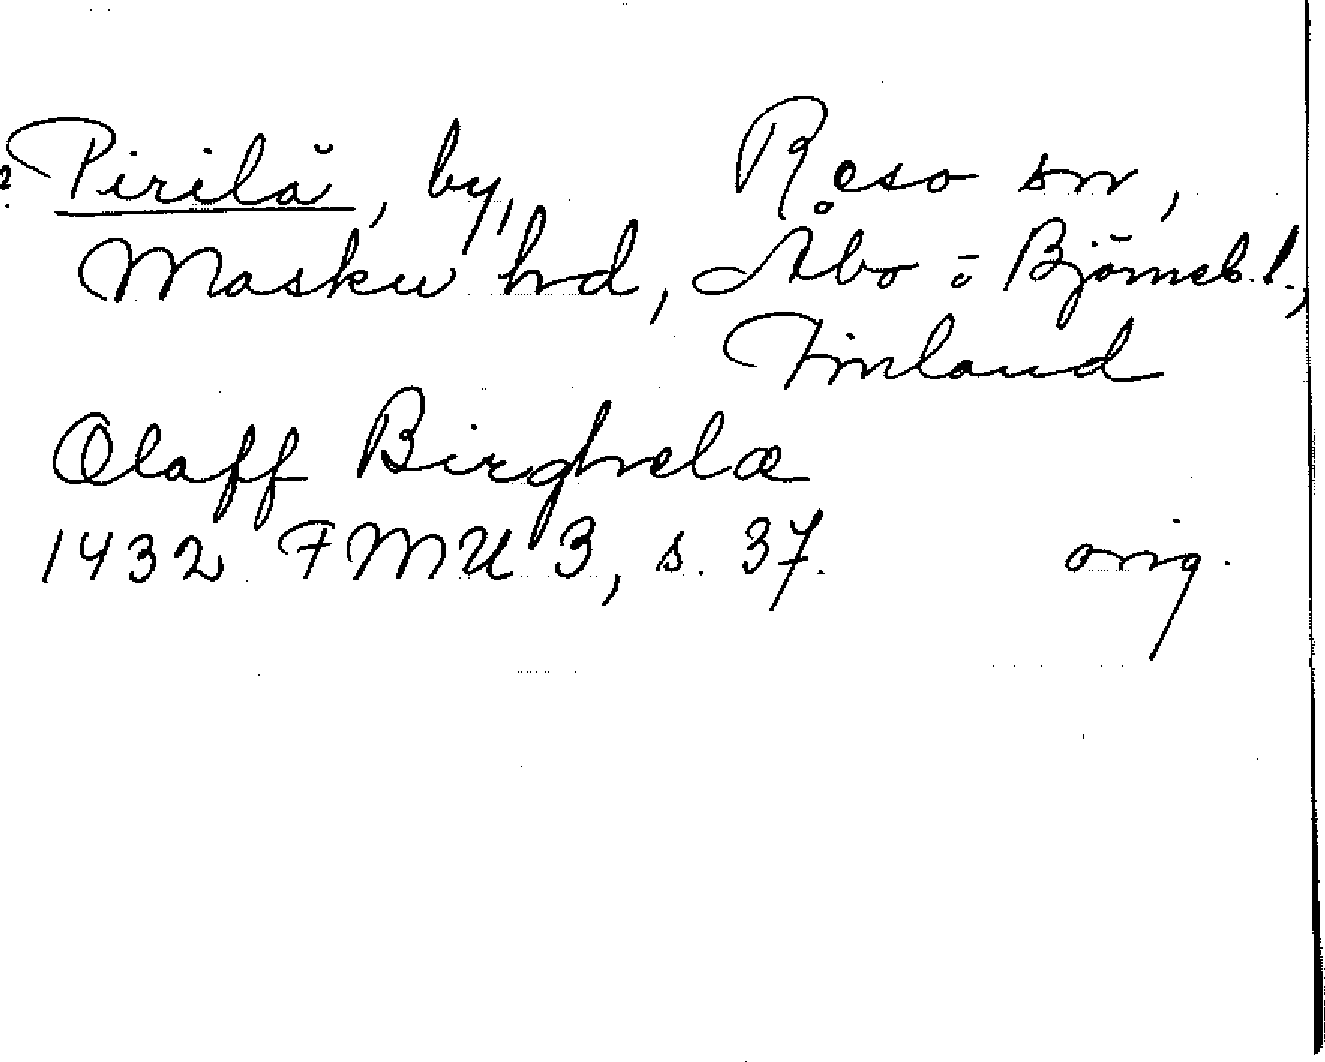 ? Pirilä, by, Reso sn,
Masku hd, Åbo o Björneb. l.,
Finland
Olaff Birghelæ
1432 FMU 3, s. 37. orig.